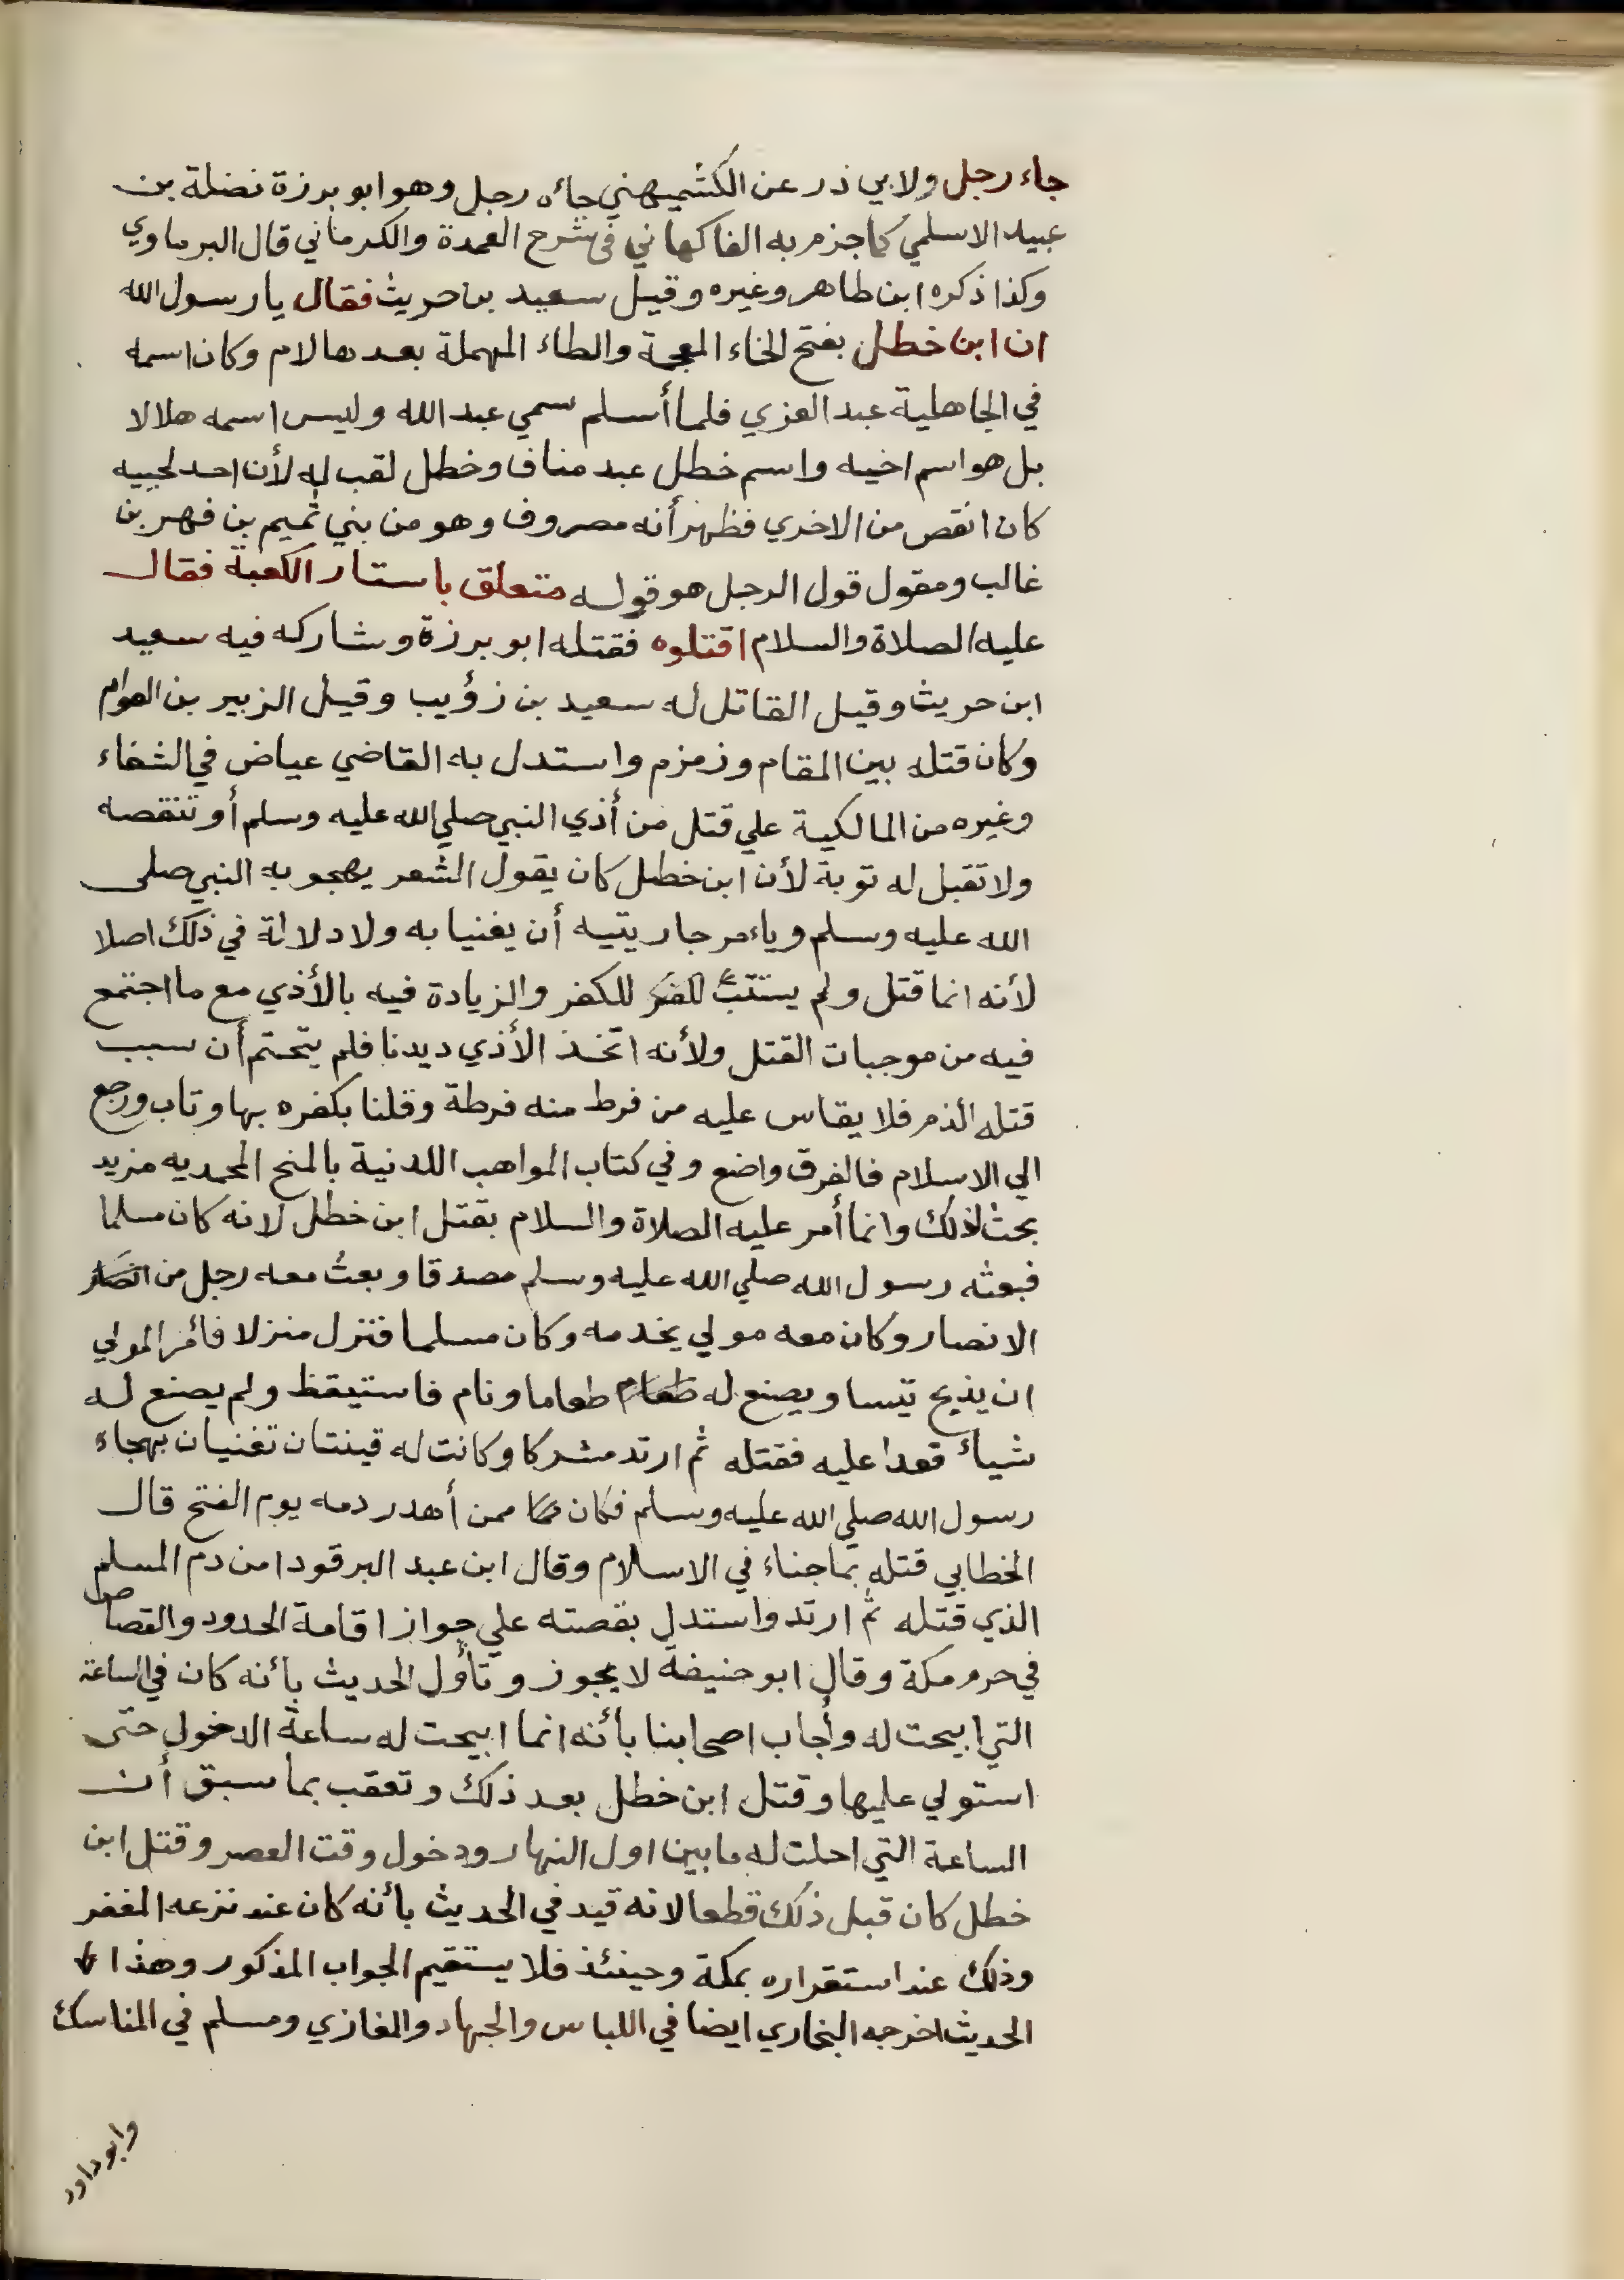 جاء رجل ولابي ذر عن الكشميهني جاءه رجل وهو ابو برزة نضلة بن
عبيد الاسلمي كما جزم به الفاكهاني في شرح العمدة والكرماني قال البرماوي
وكذا ذكره ابن طاهر وغيره وقيل سعيد بن حريث فقال يا رسول الله
ان ابن خطل بفتح الخاء المعجمة والطاء المهملة بعدها لام وكان اسمه
في الجاهلية عبد العزي فلما أسلم سمي عبد الله وليس اسمه هلالا
بل هو اسم اخيه واسم خطل عبد مناف وخطل لقب له لأن احد لحييه
كان انقص من الاخري فظهر أنه مصروف وهو من بني تميم بن فهر بن
غالب ومقول قول الرجل هو قوله متعلق باستار الكعبة فقال
عليه الصلاة والسلام اقتلوه فقتله ابو برزة وشاركه فيه سعيد
ابن حريث وقيل القاتل له سعيد بن زؤيب وقيل الزبير بن العوام
وكان قتله بين المقام وزمزم واستدل به القاضي عياض في الشفاء
وغيره من المالكية علي قتل من أذي النبي صلي الله عليه وسلم أو تنقصه
ولا تقبل له توبة لأن ابن خطل كان يقول الشعر يهجو به النبي صلى
الله عليه وسلم وياءمر جاريتيه أن يغنيا به ولا دلالة في ذلك اصلا
لأنه انما قتل ولم يستتب للكفر والزيادة فيه بالأذي مع ما اجتمع
فيه من موجبات القتل ولأنه اتخذ الأذي ديدنا فلم يتحتم أن سبب
قتله الذم فلا يقاس عليه من فرط منه فرطة وقلنا بكفره بها وتاب ورجع
الي الاسلام فالفرق واضع وفي كتاب المواهب اللدنية بالمنح المحمديه مزيد
بحث لذلك وانما أمر عليه الصلاة والسلام بقتل ابن خطل لانه كان مسلما
فبعثه رسول الله صلي الله عليه وسلم مصدقا وبعث معه رجل من
الانصار وكان معه مولي يخدمه وكان مسلما فنزل منزلا فائمر المولي
ان يذبح تيسا ويصنع له طعام طعاما ونام فاستيقظ ولم يصنع له
شياء فعدا عليه فقتله ثم ارتد مشركا وكانت له قينتان تغنيان بهجاء
رسول الله صلي الله عليه وسلم فكان ممن أهدر دمه يوم الفتح قال
الخطابي قتله بما جناء في الاسلام وقال ابن عبد البر قودا من دم المسلم
الذي قتله ثم ارتد واستدل بقصته علي جواز اقامة الحدود والقصاص
في حرم مكة وقال ابو حنيفة لا يجوز وتأول الحديث بائنه كان في الساعة
التي ابيحت له وأجاب اصحابنا بائنه انما ابيحت له ساعة الدخول حتى
استولي عليها وقتل ابن خطل بعد ذلك وتعقب بما سبق أن
الساعة التي احلت له ما بين اول النهار ودخول وقت العصر وقتل ابن
خطل كان قبل ذلك قطعا لانه قيد في الحديث بائنه كان عند نزعه المغفر
وذلك عند استقراره بمكة وحينئذ فلا يستقيم الجواب المذكور وهذا
الحديث اخرجه البخاري ايضا في اللباس والجهاد والمغازي ومسلم في المناسك
وابوداود